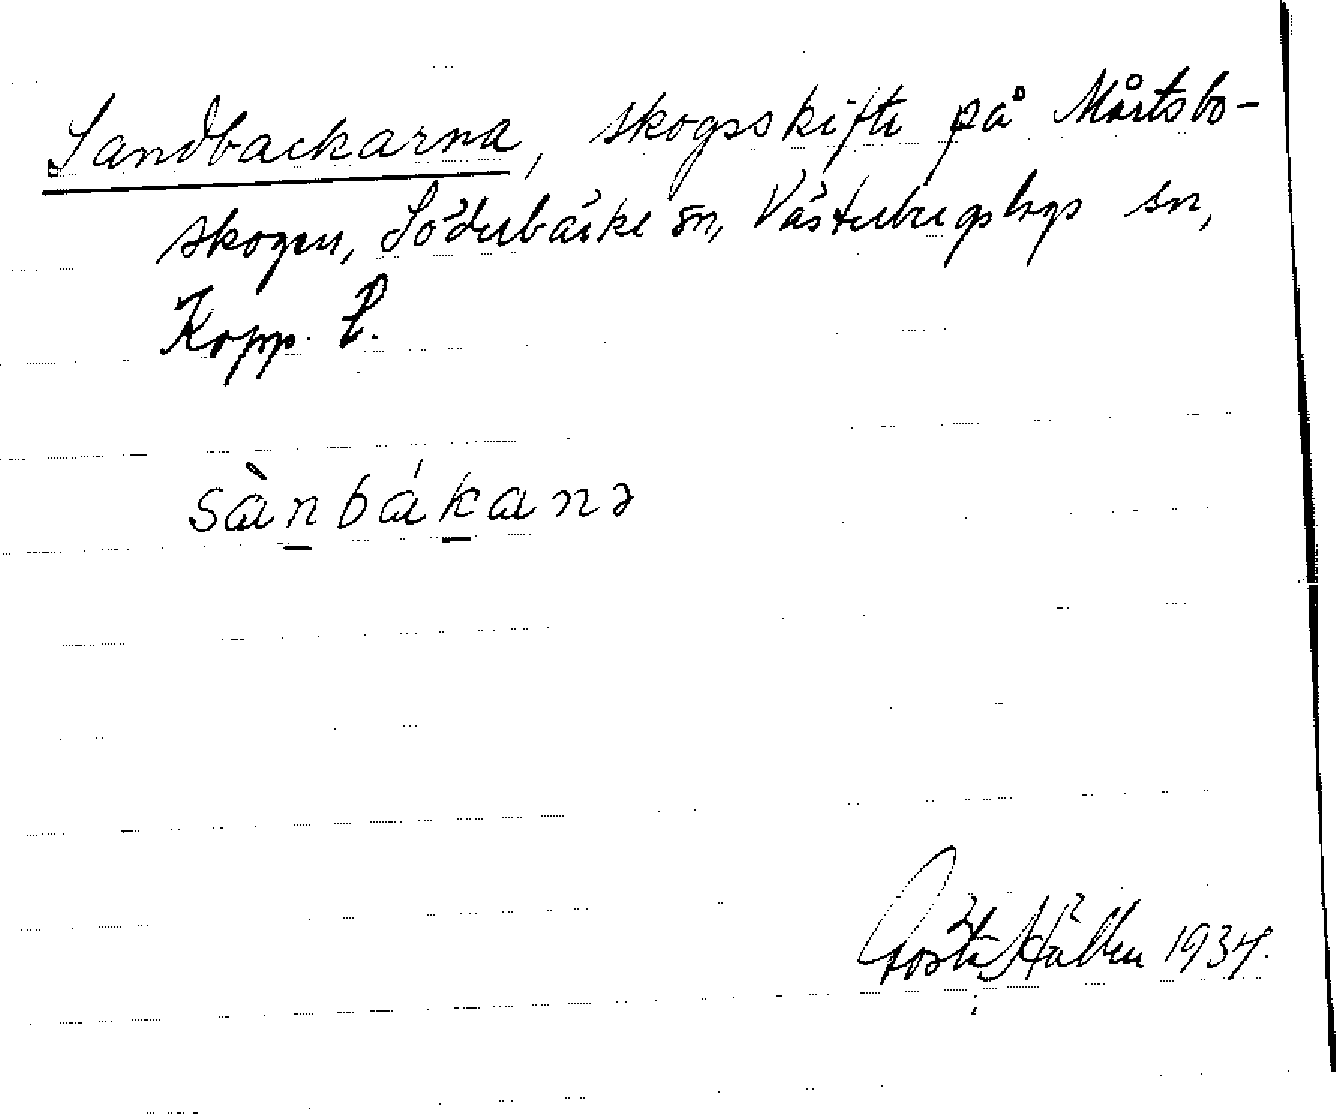 Sandbackarna, skogsskifte på Mårtsbo-
skogen, Söderbärke sn, Västerbergslags sn,
Kopp. l.
sànbákanə
Gösta Hållen 1934.